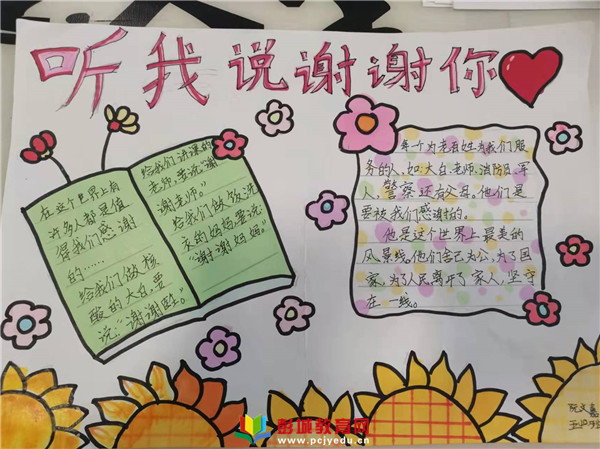 听我说谢谢你
在这个世界上有
许多人都是值
得我们感谢
的……
给我们做核
酸的大白,要
说:“谢谢医。”
给我们讲课的
老师,要说“谢
谢老师。”
给我们做饭洗
衣的妈妈要说
“谢谢妈妈。”
每个为老百姓为我们服
务的人,如:大白、老师、消防员、军
人,警察还有父母。他们是
要被我们感谢的。
他是这个世界上最美的
风景线。他们舍己为公,为了国
家,为了人民离开了家人,坚守
在一线。
阮文嘉
彭城教育网
www.pcjyedu.cn